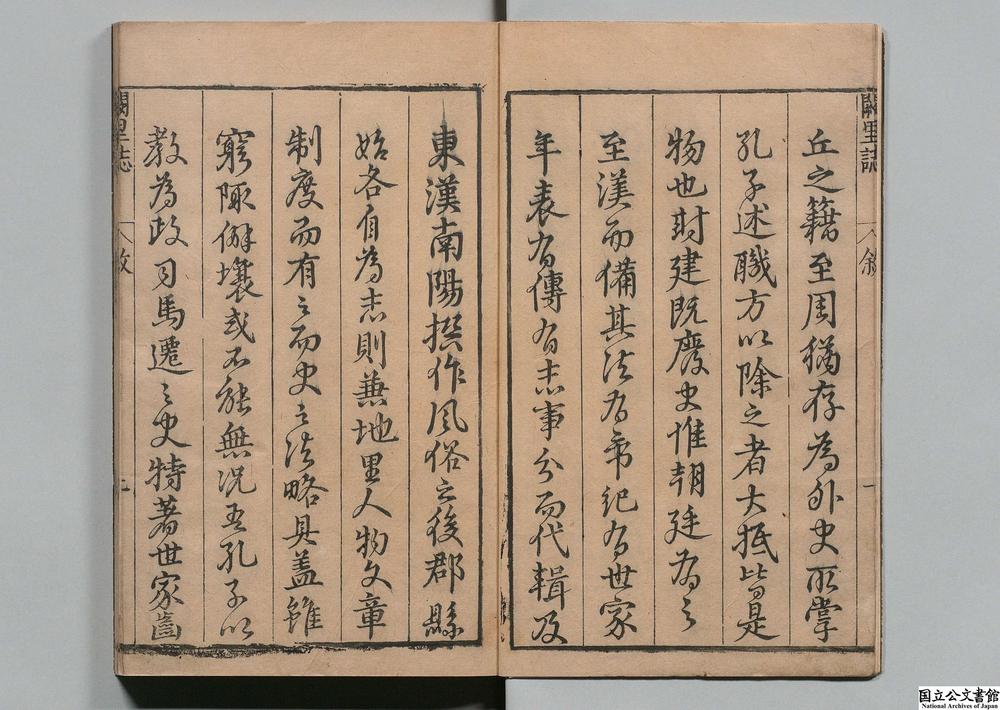 闕里誌
敘
一
丘之籍至周猶存為外史所掌
孔子述職方以除之者大抵皆是
物也封建既廢史惟朝廷為之
至漢而備其法有帝紀有世家
年表有傳有志事分而代輯及
東漢南陽撰作風俗之後郡縣
始各自為志則兼地里人物文章
制度而有之而史之法略具蓋雖
窮陬僻壤或不能無況吾孔子以
教為政司馬遷之史特著世家齒
闕里誌
敘
二
国立公文書館
National Archives of Japan